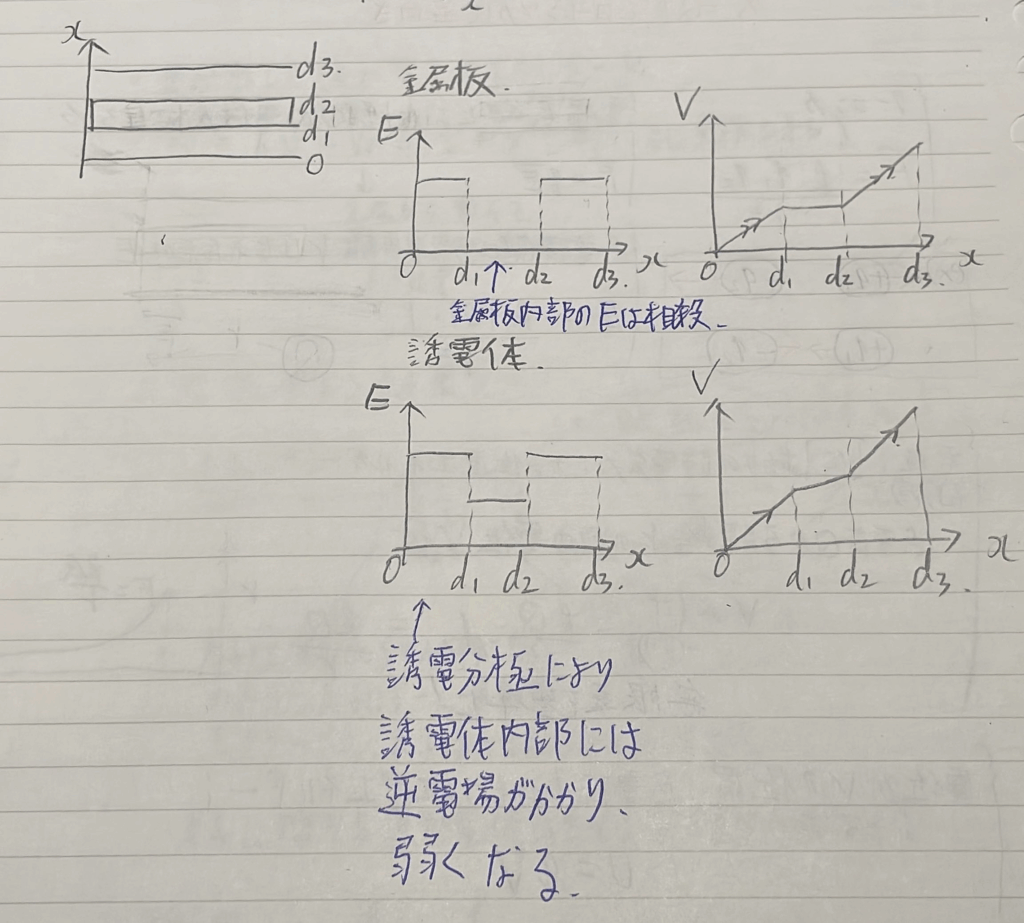 x
d3.
d2
d1
0
金属板.
E
0 d1 d2 d3. x
V
0 d1 d2 d3. x
金属板内部のEは相殺.
誘電体.
E
0 d1 d2 d3. x
V
0 d1 d2 d3. x
誘電分極により
誘電体内部には
逆電場がかかり、
弱くなる.